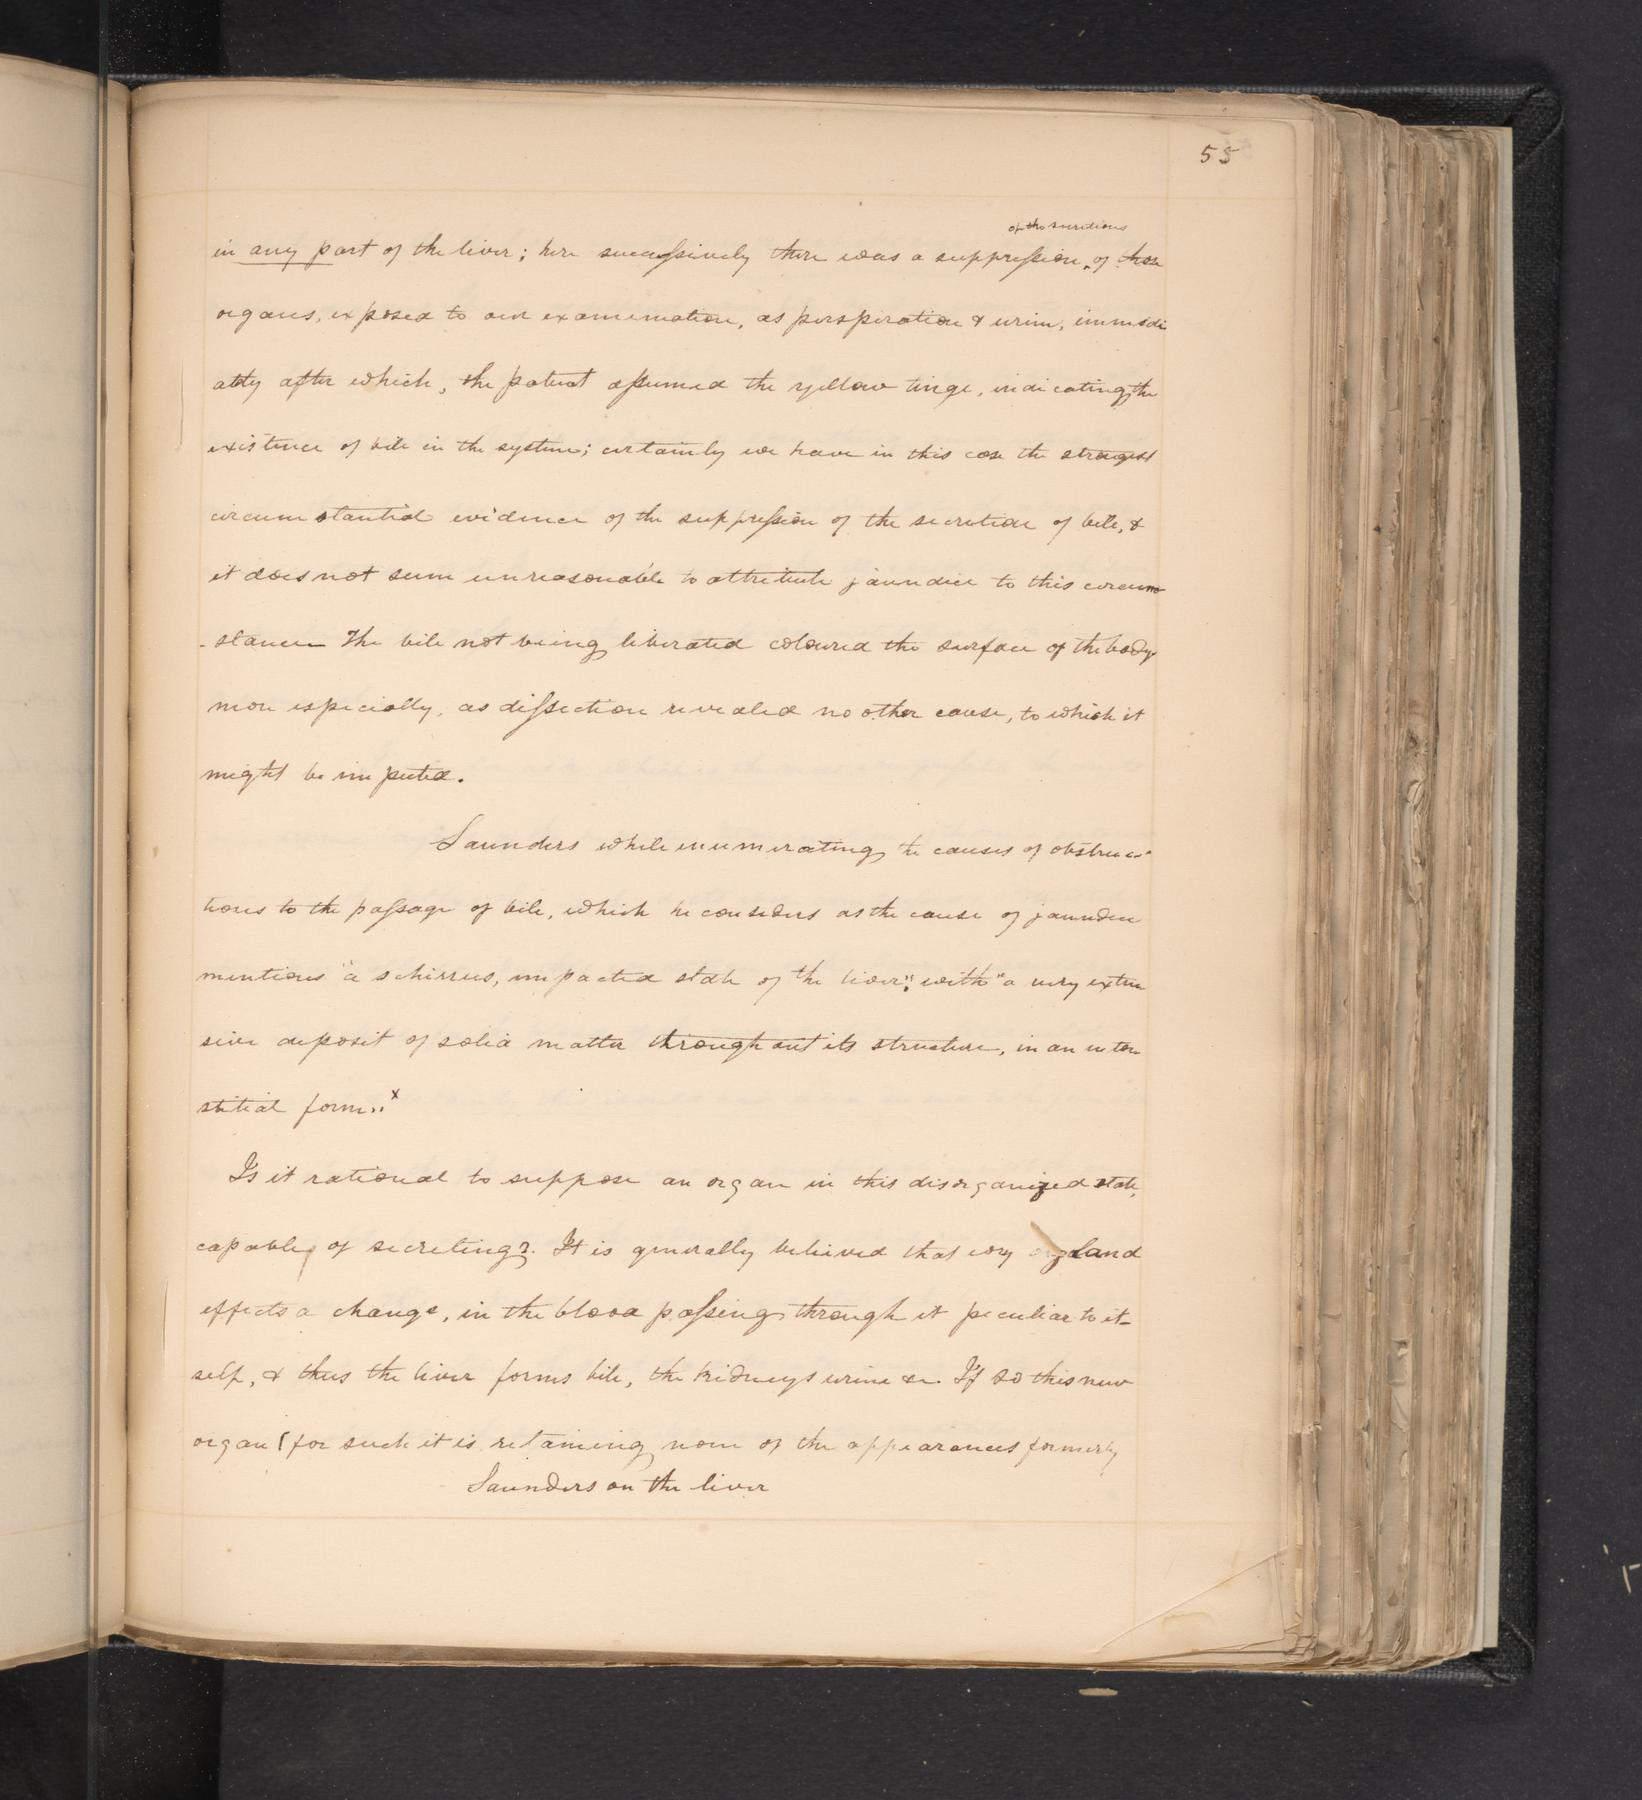 55
of the secretions
in any part of the liver; here successively there was a suppression of those
organs, exposed to our examination, as perspiration & urine, immedi
ately after which, the patient assumed the yellow tinge, indicating the
existence of bile in the system; certainly we have in this case the strongest
circumstantial evidence of the suppression of the secretion of bile, &
it does not seem unreasonable to attribute jaundice to this circum
-stance The bile not being liberated coloured the surface of the body
more especially, as dissection revealed no other cause, to which it
might be imputed.
Saunders while enumerating the causes of obstruc-
tions to the passage of bile, which he considers as the cause of jaundice
mentions "a schirrus, impacted state of the liver"; with "a very exten
sive deposit of solid matter throughout its structure, in an inter
stitial form." x
Is it rational to suppose an organ in this disorganized state,
capable of secreting?. It is generally believed that every gland
effects a change, in the blood passing through it peculiar to it-
self, & thus the liver forms bile, the kidneys urine &c. If so this new
organ (for such it is retaining none of the appearances formerly
Saunders on the liver